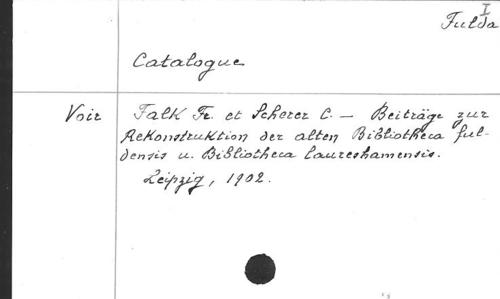 I
Fulda
Catalogue
Voir Falk Fr. et Scherer C. — Beiträge zur
Rekonstruktion der alten Bibliotheca ful-
densis u. Bibliotheca laureshamensis.
Leipzig, 1902.